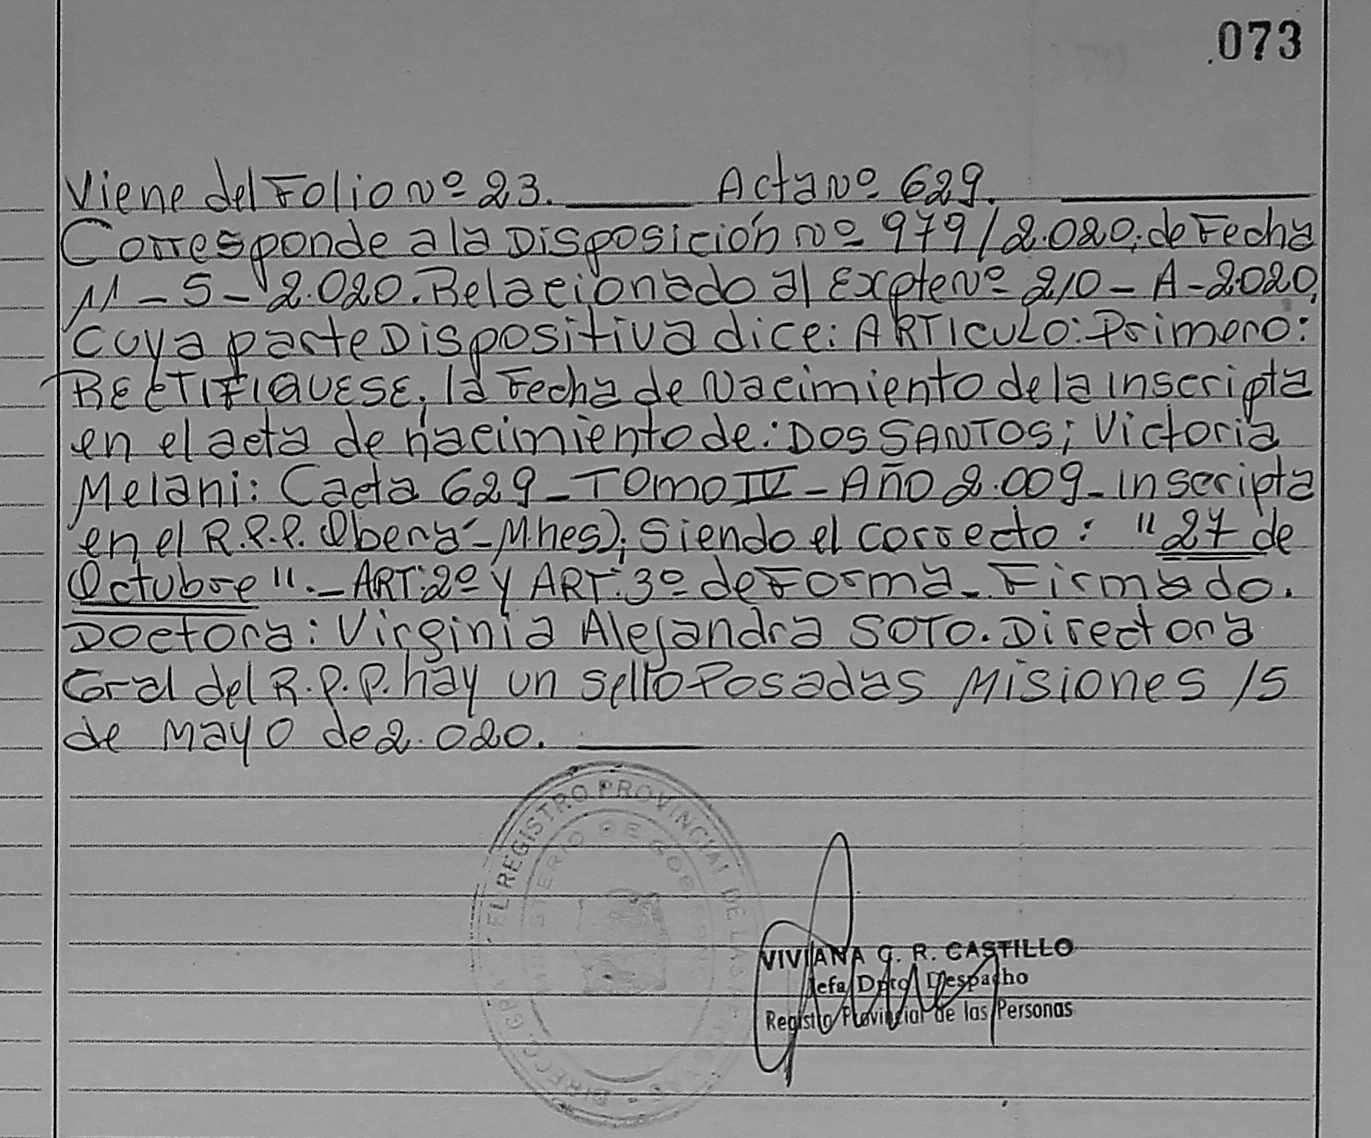 .073
Viene del Folio Nº 23. Acta Nº 629.
Corresponde a la Disposición Nº 979/2.020, de Fecha
11-5-2.020. Relacionado al Expte Nº 210-A-2020,
cuya parte Dispositiva dice: ARTICULO: Primero:
RECTIFIQUESE, la Fecha de Nacimiento de la inscripta
en el acta de nacimiento de: DOS SANTOS; Victoria
Melani: Cacta 629-Tomo IV-Año 2.009-Inscripta
en el R.P.P. Oberá-Mnes); Siendo el correcto: "27 de
Octubre".- ART: 2º Y ART: 3º de Forma- Firmado.
Doctora: Virginia Alejandra SOTO. Directora
Gral del R.P.P. hay un sello Posadas Misiones 15
de Mayo de 2.020.
REGISTRO PROVINCIAL DE LAS
MINISTERIO DE GOBIERNO
VIVIANA G. R. CASTILLO
Jefa Dpto Despacho
Registro Provincial de las Personas